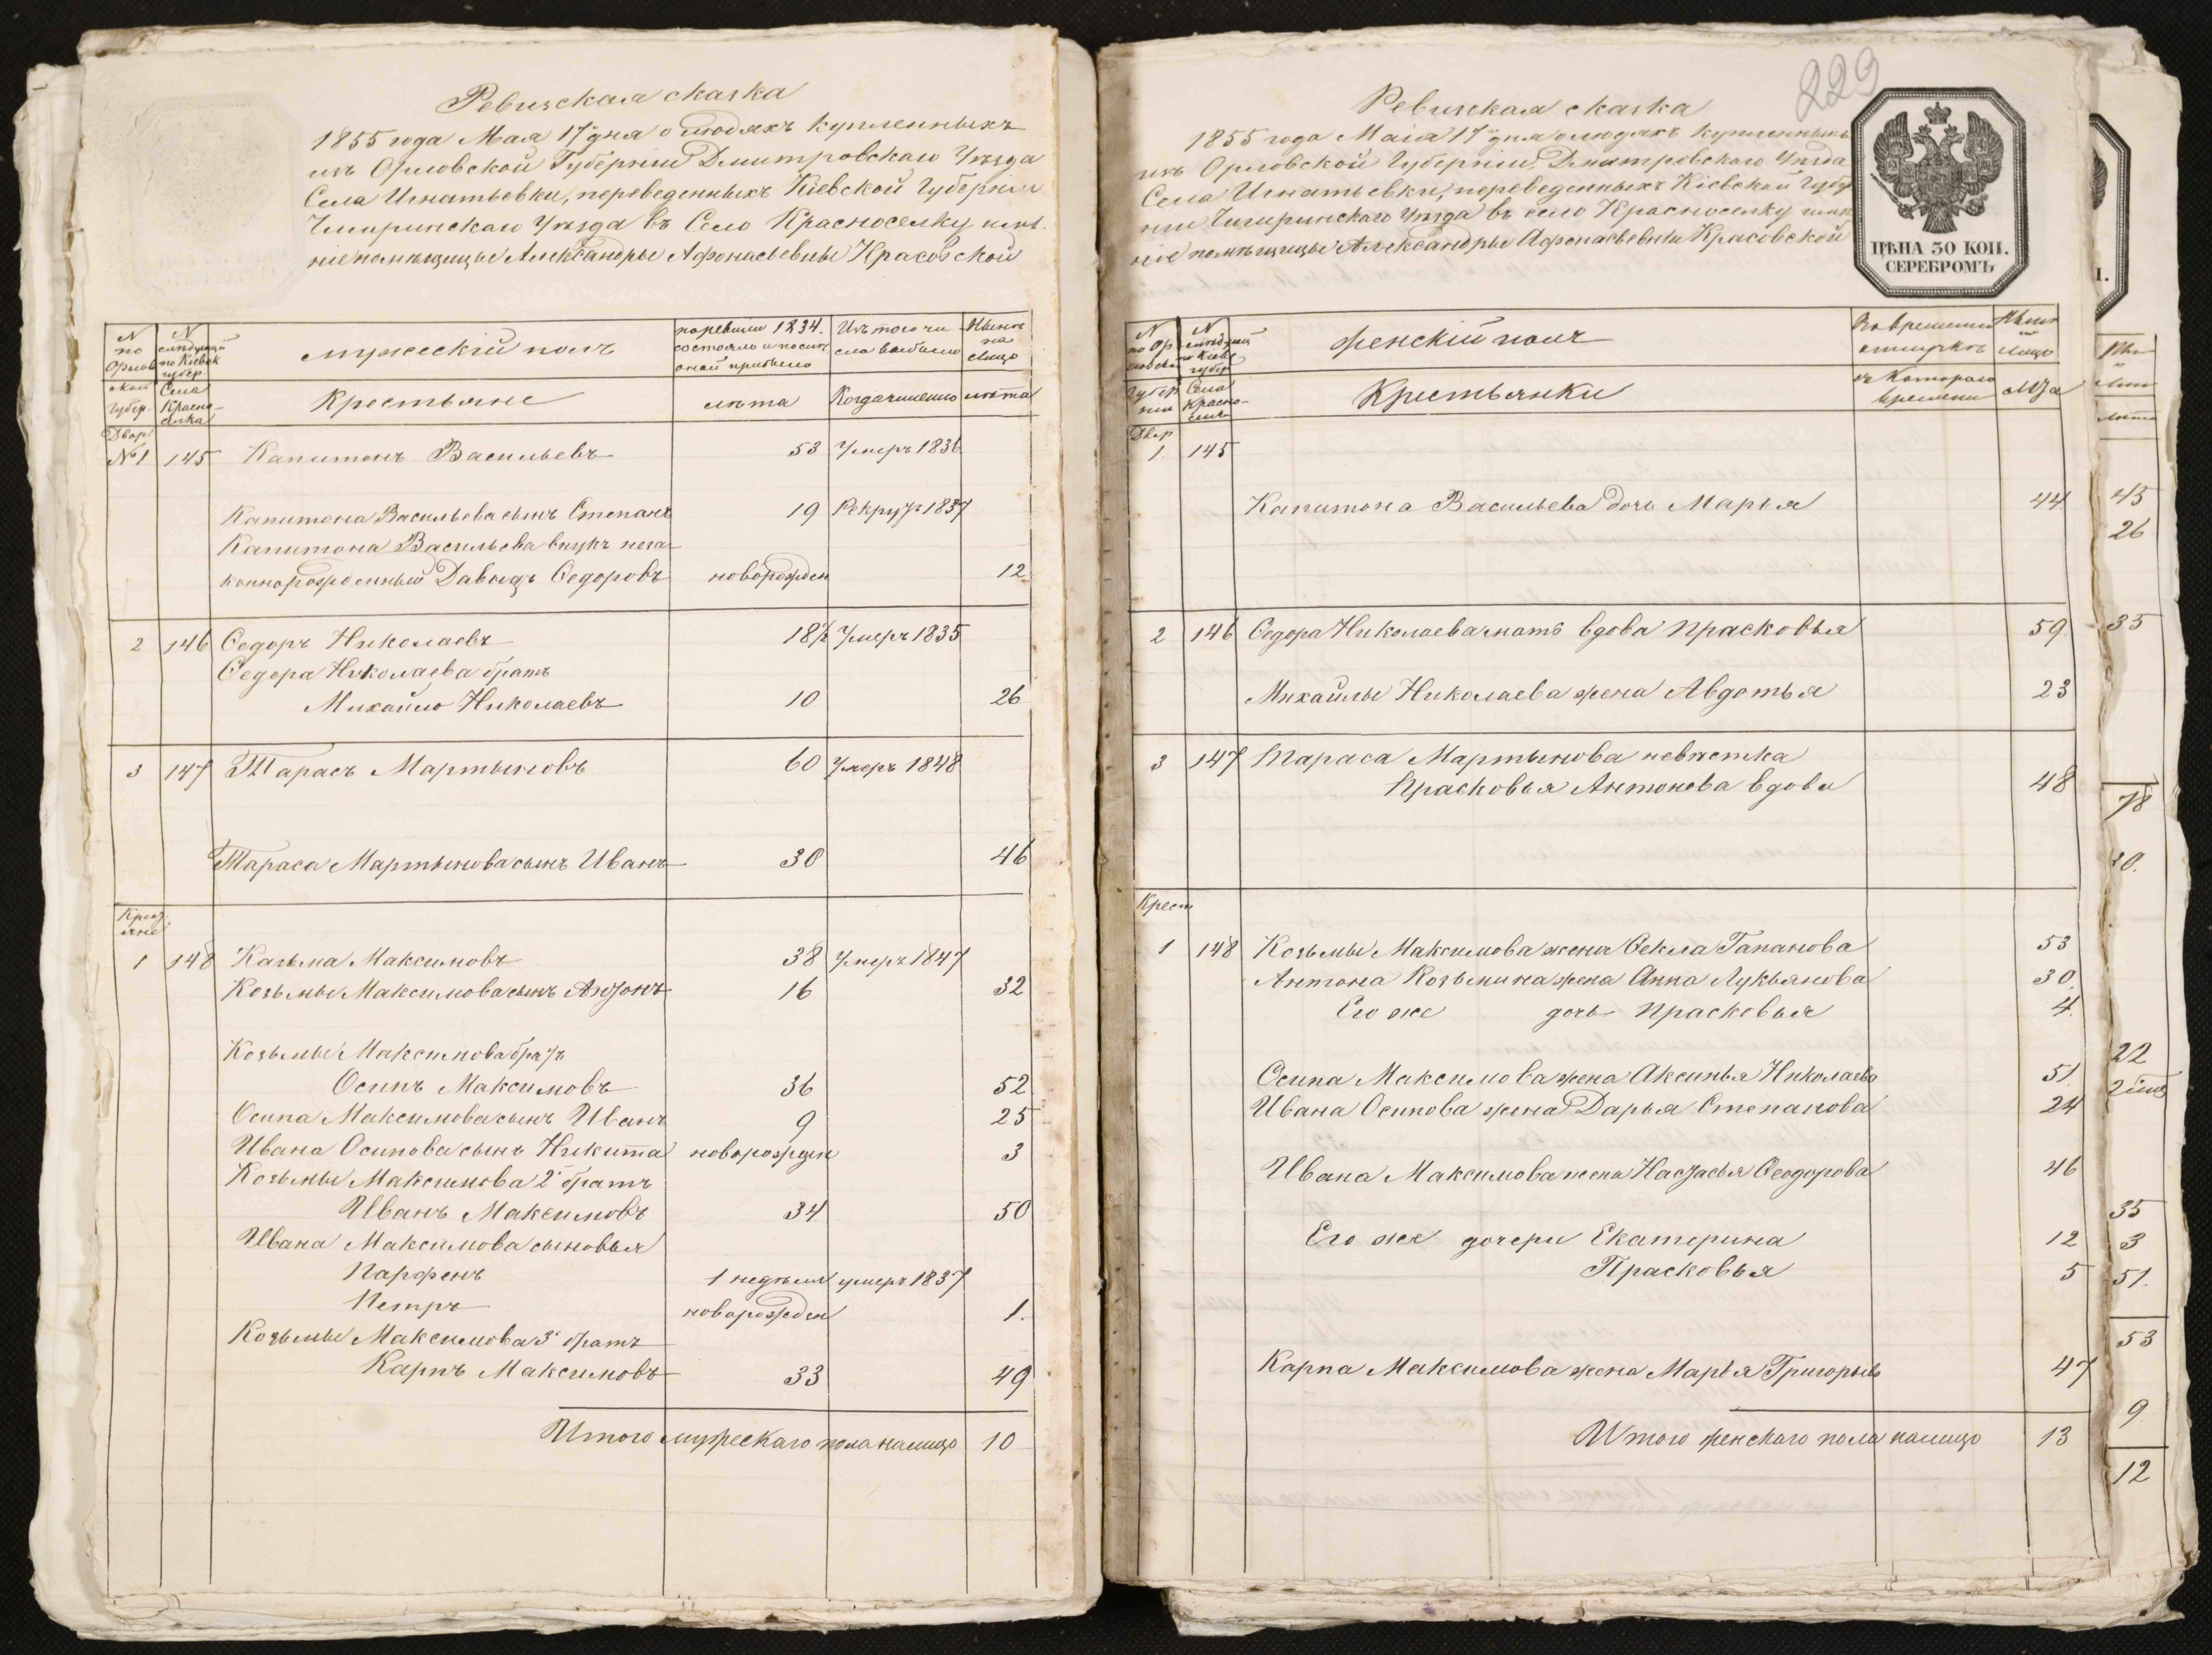 Ревизская сказка
1855 года Мая 17 дня о людяхъ купленныхъ
изъ Орловской Губерніи Дмитровскаго Уѣзда
Села Игнатьевки, переведенныхъ Кіевской Губерніи
Чигиринскаго Уѣзда въ Село Красноселку имѣ-
ніе помѣщицы Александры Афонасьевны Красовской
N по Орлов
ской Губер.
N слѣдующій по Кіевск губер.
Села Красно-
селка
мужескій полъ
Крестьяне
по ревизіи 1834. состояло и послѣ оной прибыло
лѣта
Изъ того чи
сла выбыло
Когда именно
Нынѣ на лицо
лѣта
Двор
№1 145 Капитонъ Васильевъ 53 Умеръ 1836
Капитона Васильева сынъ Степанъ 19 Рекрут 1837
Капитона Васильева внукъ неза
коннорожденный Давыдъ Ѳедоровъ новорожден 12
2 146 Ѳедоръ Николаевъ 18½ Умеръ 1835
Ѳедора Николаева братъ
Михайло Николаевъ 10 26
3 147 Тарасъ Мартыновъ 60 Умеръ 1848
Тараса Мартынова сынъ Иванъ 30 46
Крест
яне
1 148 Казьма Максимовъ 38 Умеръ 1847
Козьмы Максимова сынъ Антонъ 16 32
Козьмы Максимова братъ
Осипъ Максимовъ 36 52
Осипа Максимова сынъ Иванъ 9 25
Ивана Осипова сынъ Никита новорожден 3
Козьмы Максимова 2й братъ
Иванъ Максимовъ 34 50
Ивана Максимова сыновья
Парфенъ 1 недѣли умеръ 1837
Петръ новорожден 1.
Козьмы Максимова 3й братъ
Карпъ Максимовъ 33 49
Итого мужескаго пола налицо 10
229
Ревизская сказка
1855 года Мая 17 дня о людяхъ купленныхъ
изъ Орловской Губерніи Дмитровскаго Уѣзда
Села Игнатьевки, переведенныхъ Кіевской Губер
ніи Чигиринскаго Уѣзда въ село Красноселку имѣ
ніе помѣщицы Александры Афонасьевны Красовской
ЦѢНА 30 КОП.
СЕРЕБРОМЪ
N по Ор
ловской
Губер
ніи
N слѣдующій по Кіевс губер
Села Красно-
селк
женскій полъ
Крестьянки
Во временной
отлучкѣ
съ котораго
времени
Нынѣ
лицо
лѣта
Двор
1. 145
Капитона Васильева дочь Марья 44
2 146 Ѳедора Николаева мать вдова Прасковья 59
Михайлы Николаева жена Авдотья 23
3 147 Тараса Мартынова невѣстка
Прасковья Антонова вдова 48
Крест
1 148 Козьмы Максимова жена Ѳекла Гапанова 53
Антона Козьмина жена Анна Лукьянова 30
Его же дочь Прасковья 4
Осипа Максимова жена Аксинья Николаева 51
Ивана Осипова жена Дарья Степанова 24
Ивана Максимова жена Настасья Ѳеодорова 46
Его же дочери Екатерина 12
Прасковья 5
Карпа Максимова жена Марья Григорьева 47
Итого женскаго пола налицо 13
45
26
35
78
22
35
3
51.
53
9
12